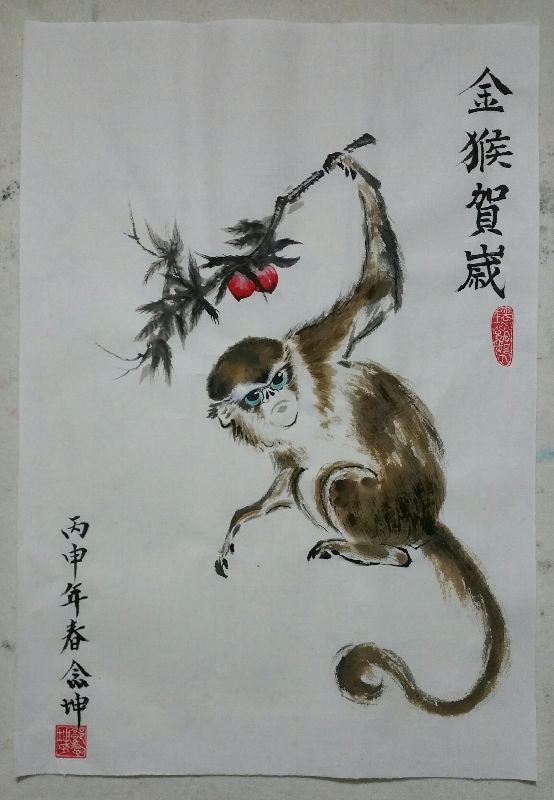 金猴賀歳
丙申年春念坤